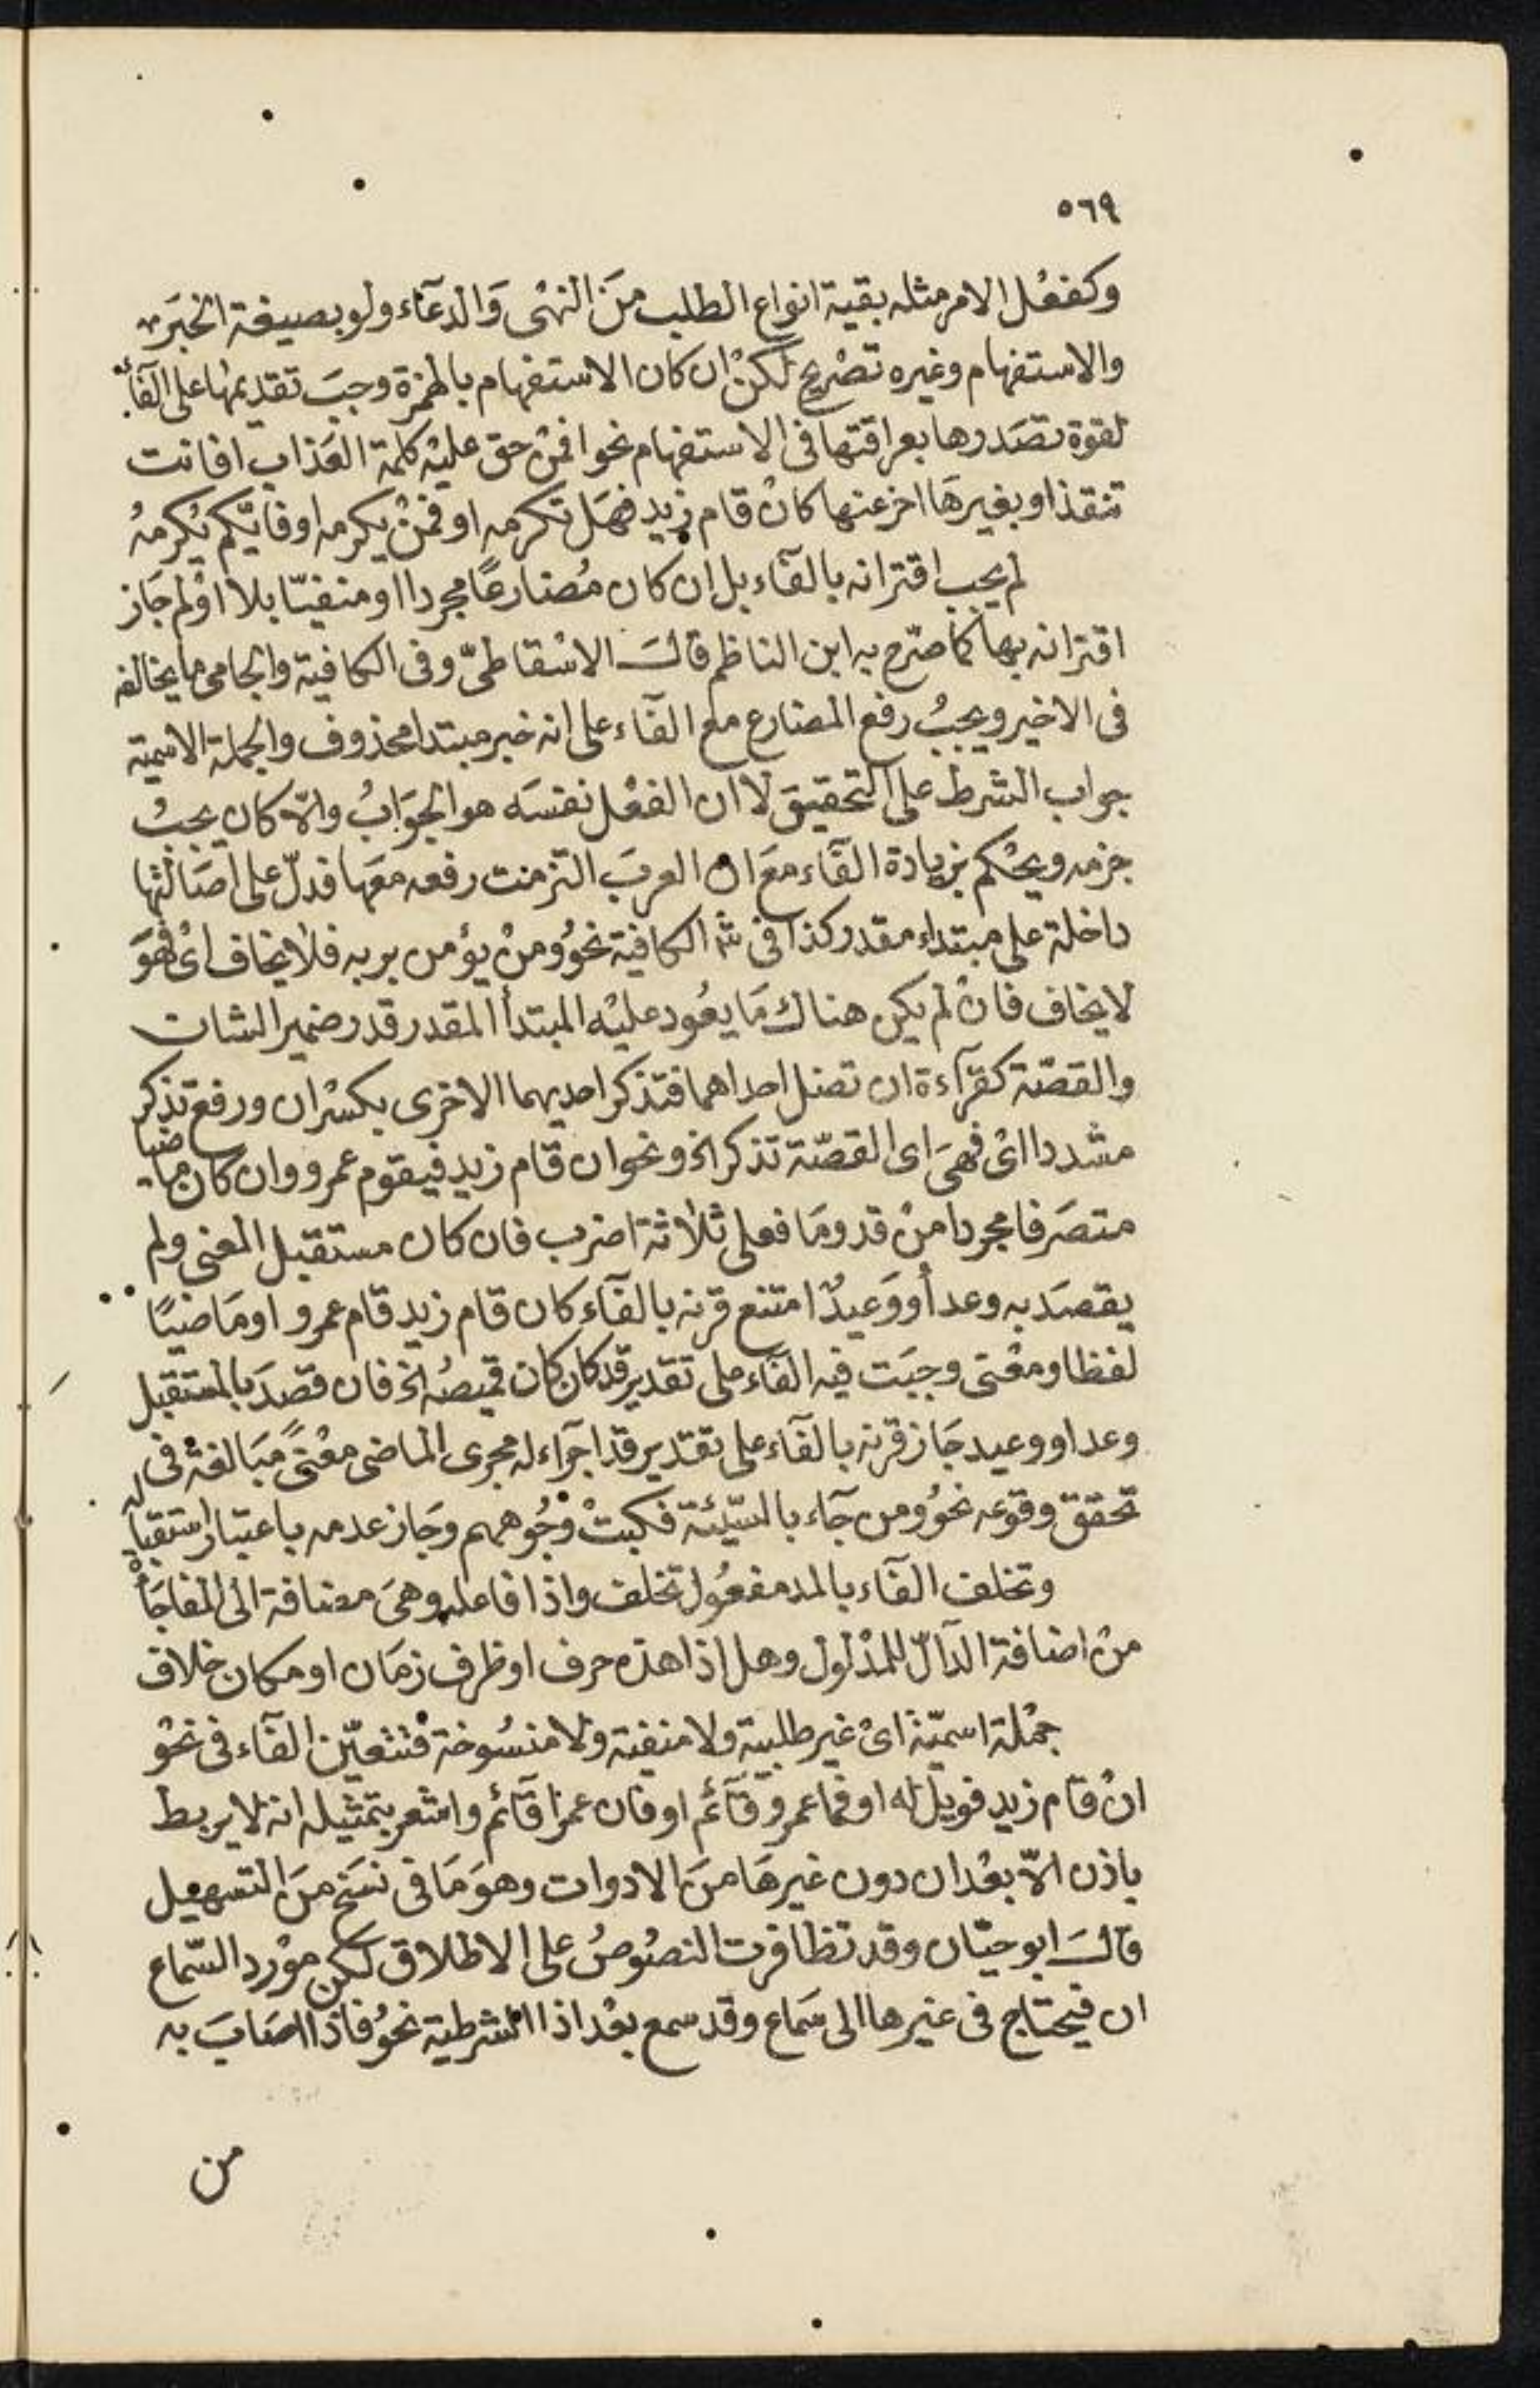 ٥٦٩
وكفعْل الامر مثله بقية انواع الطلب منَ النهْى وَالدعَآء ولو بصيغة الخبَر
والاستفهام وغيره تصْريح لكنْ ان كان الاستفهام بالهمْزة وجبَ تقديمهَا على الفآء
لقوة تصَدرها بعراقتهَا فى الاستفهام نحو افمنْ حق عليْه كلمة العَذاب افانت
تنقذ او بغيرهَا اخر عنها كانْ قام زيد فهَل تكرمه او فمنْ يكرمه او فايّكم يُكرمهُ
لم يجب اقترانه بالفآء بل ان كان مُضارعًا مجردا او منفيّا بلا اوْ لم جَاز
اقترانه بهَا كما صرّح به ابن الناظم قالَ الاسْقاطىّ وفى الكافية والجامى ما يخالفه
فى الاخير ويجبُ رفع المضارع مع الفآء على انه خبر مبتدا محذوف والجملة الاسمية
جواب الشرط على التحقيق لا ان الفعْل نفسَه هو الجوَابُ والّا كان يجبُ
جزمه ويحْكم بزيادة الفآء معَ ان العربَ التزمت رفعه معَهَا فدلّ على اصَالتْها
داخلة على مبتداء مقدر كذا فى شر الكافية نحوُ ومنْ يؤمن بربه فلا يخاف اىْ فهوَ
لا يخاف فانْ لم يكن هناك مَا يعُود عليْه المبتدأ المقدر قدر ضمير الشان
والقصّة كقرآءة ان تضل احداهما فتذكر احديهما الاخرى بكسْر ان ورفع تذكر
مشددا اىْ فهىَ اى القصّة تذكر الخ ونحو ان قام زيد فيقوم عمرو وان كان ماضيا
متصَرفا مجردا منْ قد ومَا فعلى ثلاثة اضرب فان كان مستقبل المعْنى ولم
يقصَد به وعد أو وَعيدٌ امتنع قرنه بالفآء كان قام زيد قام عمرو او مَاضيًا
لفظا ومعْنى وجبَت فيه الفآء على تقدير قد كان كان قميصُه الخ فان قصدَ بالمستقبل
وعد او وعيد جَاز قرنه بالفآء على تقدير قد اجرآء له مجرى الماضى معْنىً مبَالغة فى
تحقق وقوعه نحوُ ومن جآء بالسّيّئة فكبتْ وجُوههم وجَاز عدمه باعتبار استقباله
وتخلف الفآء بالمد مفعُول تخلف واذا فاعله وهىَ مضافة الى المفاجَأة
منْ اضافة الدآلّ للمدْلول وهل اذا هذه حرف او ظرف زمَان او مكان خلاف
جمْلة اسميّة اىْ غير طلبية ولا منفية ولا منسُوخة فتتعيّن الفآء فى نحْو
انْ قام زيد فويل له او فما عمرو قآئم او فان عمرا قآئم واشعر بتمثيله انه لا يربط
باذن الّا بعْد ان دون غيرهَا منَ الادوات وهوَ مَا فى نسَخ منَ التسهيل
قالَ ابو حيّان وقد تظافرت النصُوصُ على الاطلاق لكن موْرد السّماع
ان فيحتاج فى غيرها الى سَماع وقد سمع بعْد اذا الشرطية نحوُ فاذا اصَابَ به
من